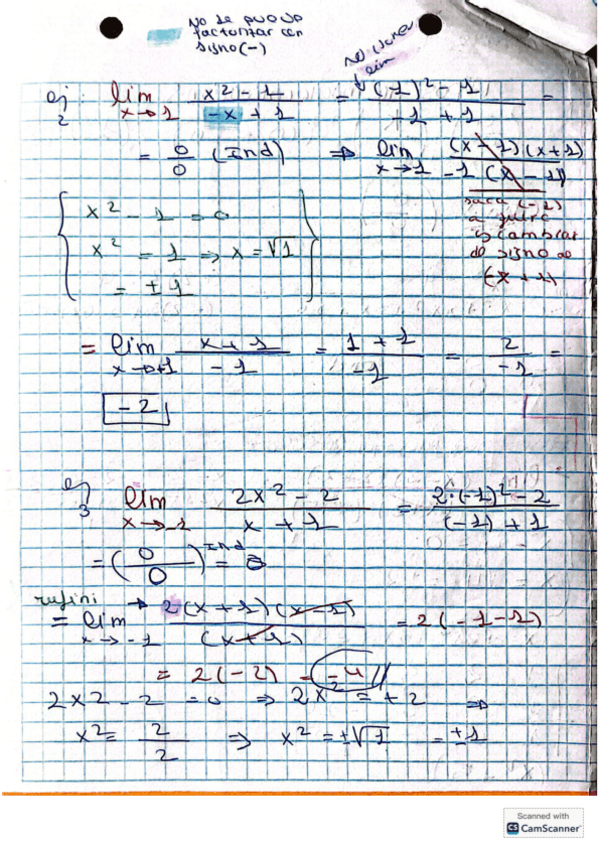 No se puede
factorizar con
signo (-)
no poner
lim
ej 2 lim x→1 x² - 1 / -x + 1 = (1)² - 1 / -1 + 1 =
= 0/0 (Ind) ⇒ lim x→1 (x - 1)(x + 1) / -1 (x - 1)
saca (-1)
cambiar
de signo
(-x + 1)
x² - 1 = 0
x² = 1 ⇒ x = √1
= ±1
= lim x→+1 x + 1 / -1 = 1 + 1 / -1 = 2 / -1 =
-2
ej 3 lim x→-1 2x² - 2 / x + 1 = 2·(-1)² - 2 / (-1) + 1
= (0/0) Ind =
rufini → 2(x + 1)(x - 1)
= lim x→-1 (x + 1) = 2(-1-1)
= 2(-2) = -4
2x2 - 2 = 0 ⇒ 2x² = +2 ⇒
x² = 2/2 ⇒ x² = ±√1 = ±1
Scanned with
CS CamScanner